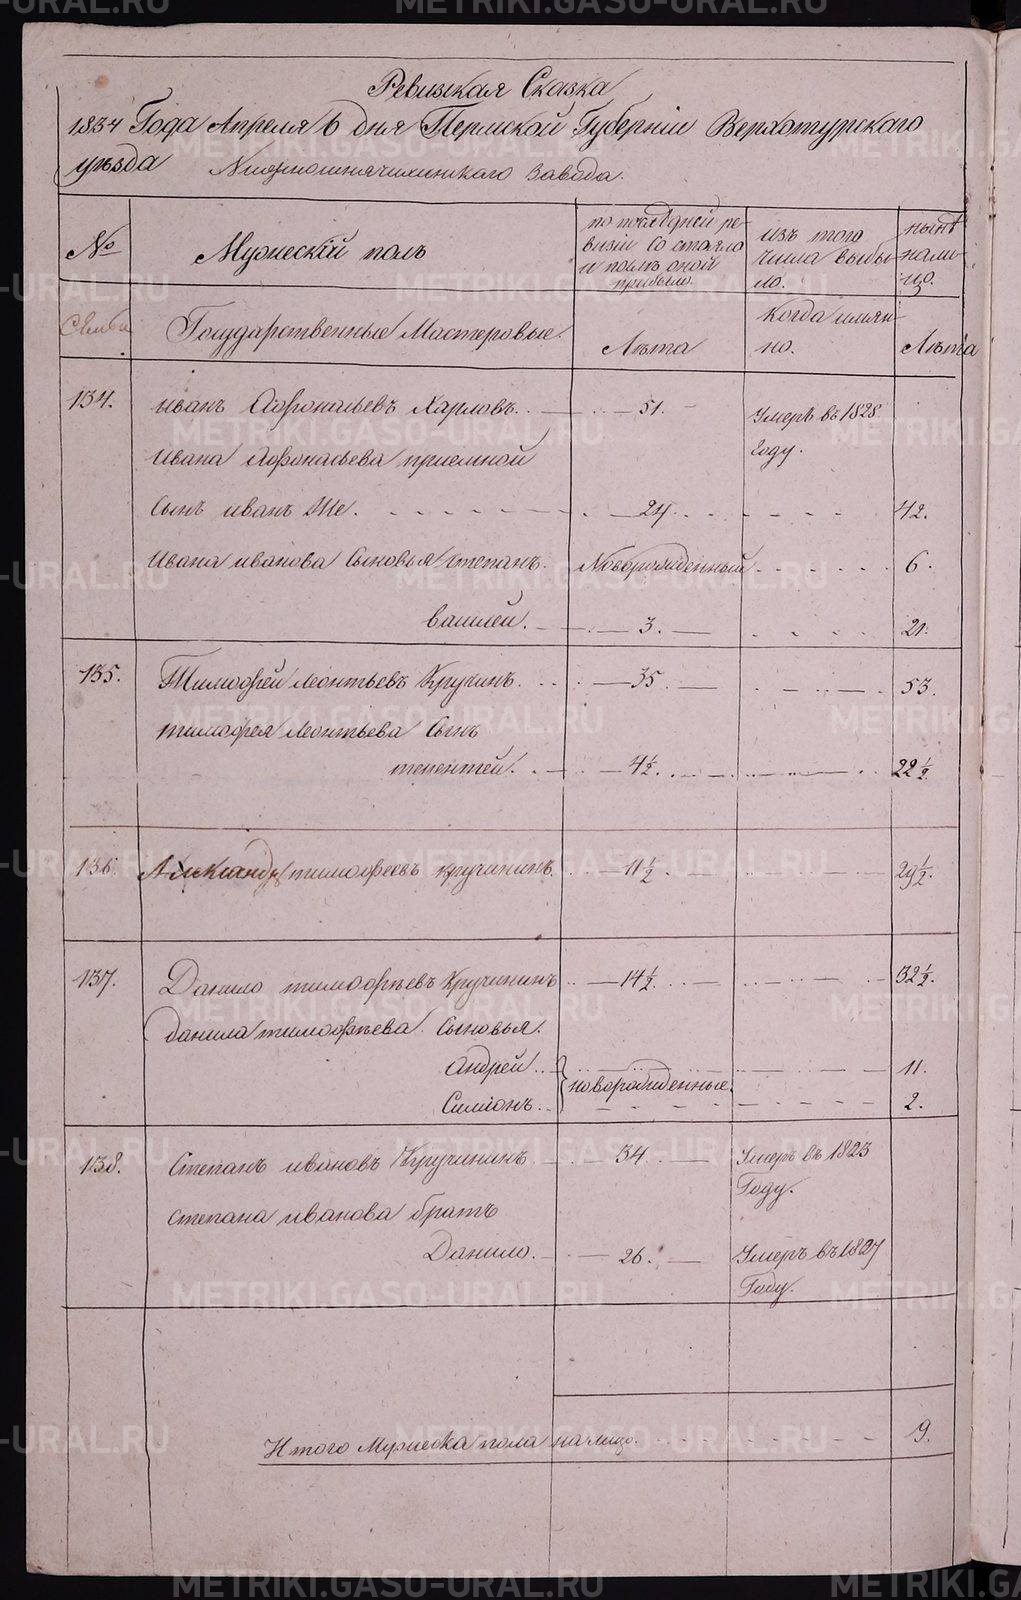 Ревизская Сказка
1834 Года Апреля 6 дня Пермской Губерніи Верхотурскаго
уѣзда Завода.
№
Мужескій полъ
по последней ре-
визіи состояло
и послѣ оной
прибыло.
изъ того
числа выбы-
ло.
нынѣ
нали-
цо.
Семьи
Государственные Мастеровые.
Лѣта
когда имян-
но.
Лѣта
134. иванъ Афонасьевъ Харловъ. 51. Умеръ въ 1828.
Году.
Ивана Афонасьева приемной
Сынъ иванъ Же. 24. 42.
Ивана иванова Сыновья степанъ. Новорожденный 6.
василей. 3. 21.
135. Тимофей леонтьевъ Кручинъ. 35. 53.
тимофея леонтьева Сынъ
терентей. 4½. 22½.
136. Александръ тимофеевъ кручининъ. 11½ 29½.
137. Данило тимофѣевъ Кручининъ 14½. 32½.
данила тимофѣева Сыновья.
Андрей. 11.
новорожденные.
Симионъ. 2.
138. Степанъ ивановъ Кручининъ 34. Умеръ въ 1823
Году.
степана иванова братъ
Данило. 26. Умеръ въ 1827
Году.
Итого Мужеска пола налицо. 9.
METRIKI.GASO-URAL.RU